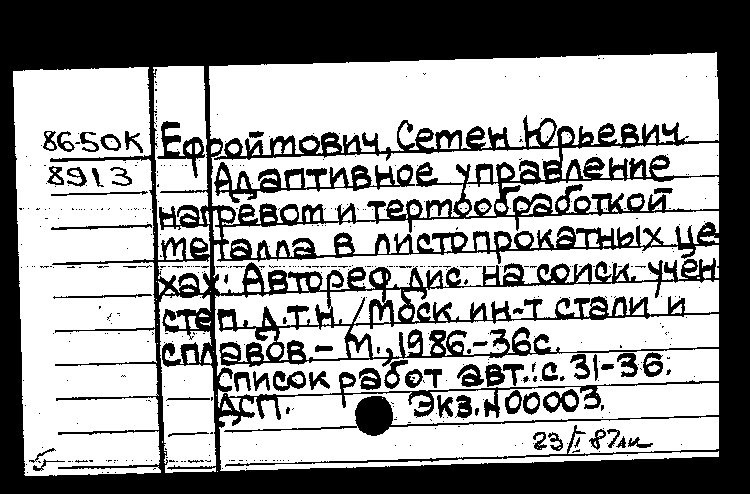 86-50К Ефройтович, Сетен Юрьевич
8913 Адаптивное управление
нагревот и тертообработкой
металла в листопрокатных це-
хах: Автореф. дис. на соиск. учен
степ. д.т.н. / Моск. ин-т стали и
сплавов. – М., 1986. – 36с.
Список работ авт.: с. 31-36.
ДСП. Экз. N 00003.
23/I 87